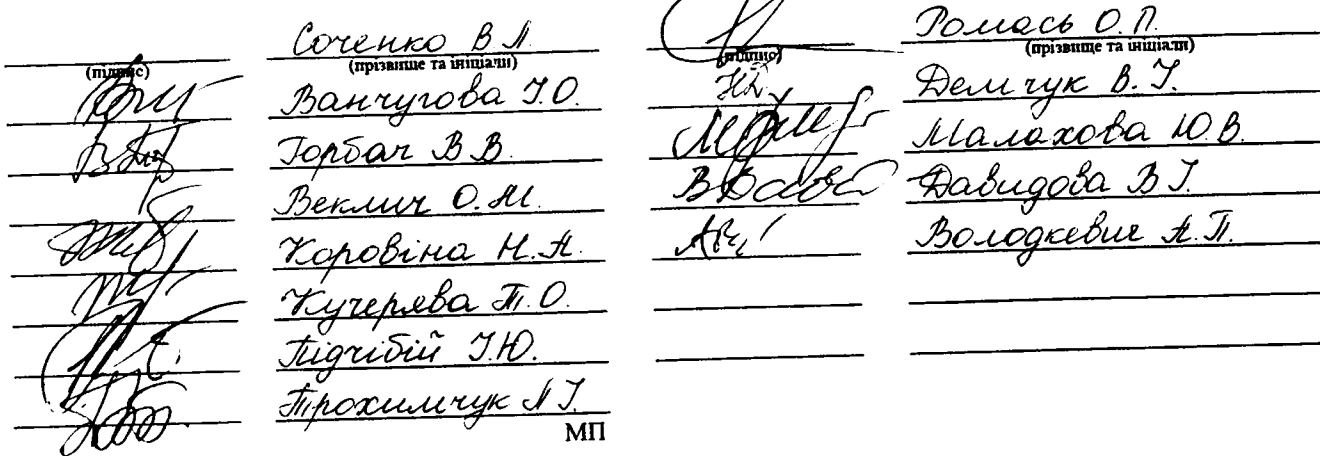 Соченко В Л
(підпис)
(прізвище та ініціали)
Ванчугова І.О.
Горбач В В.
Веклич О.М.
Коровіна Н.А.
Кучерява Т.О.
Підчібій І.Ю.
Трохимчук Л І.
МП
Ромась О.П.
(підпис)
(прізвище та ініціали)
Демчук В.І.
Малахова Ю.В.
Давидова В І.
Володкевич А.П.